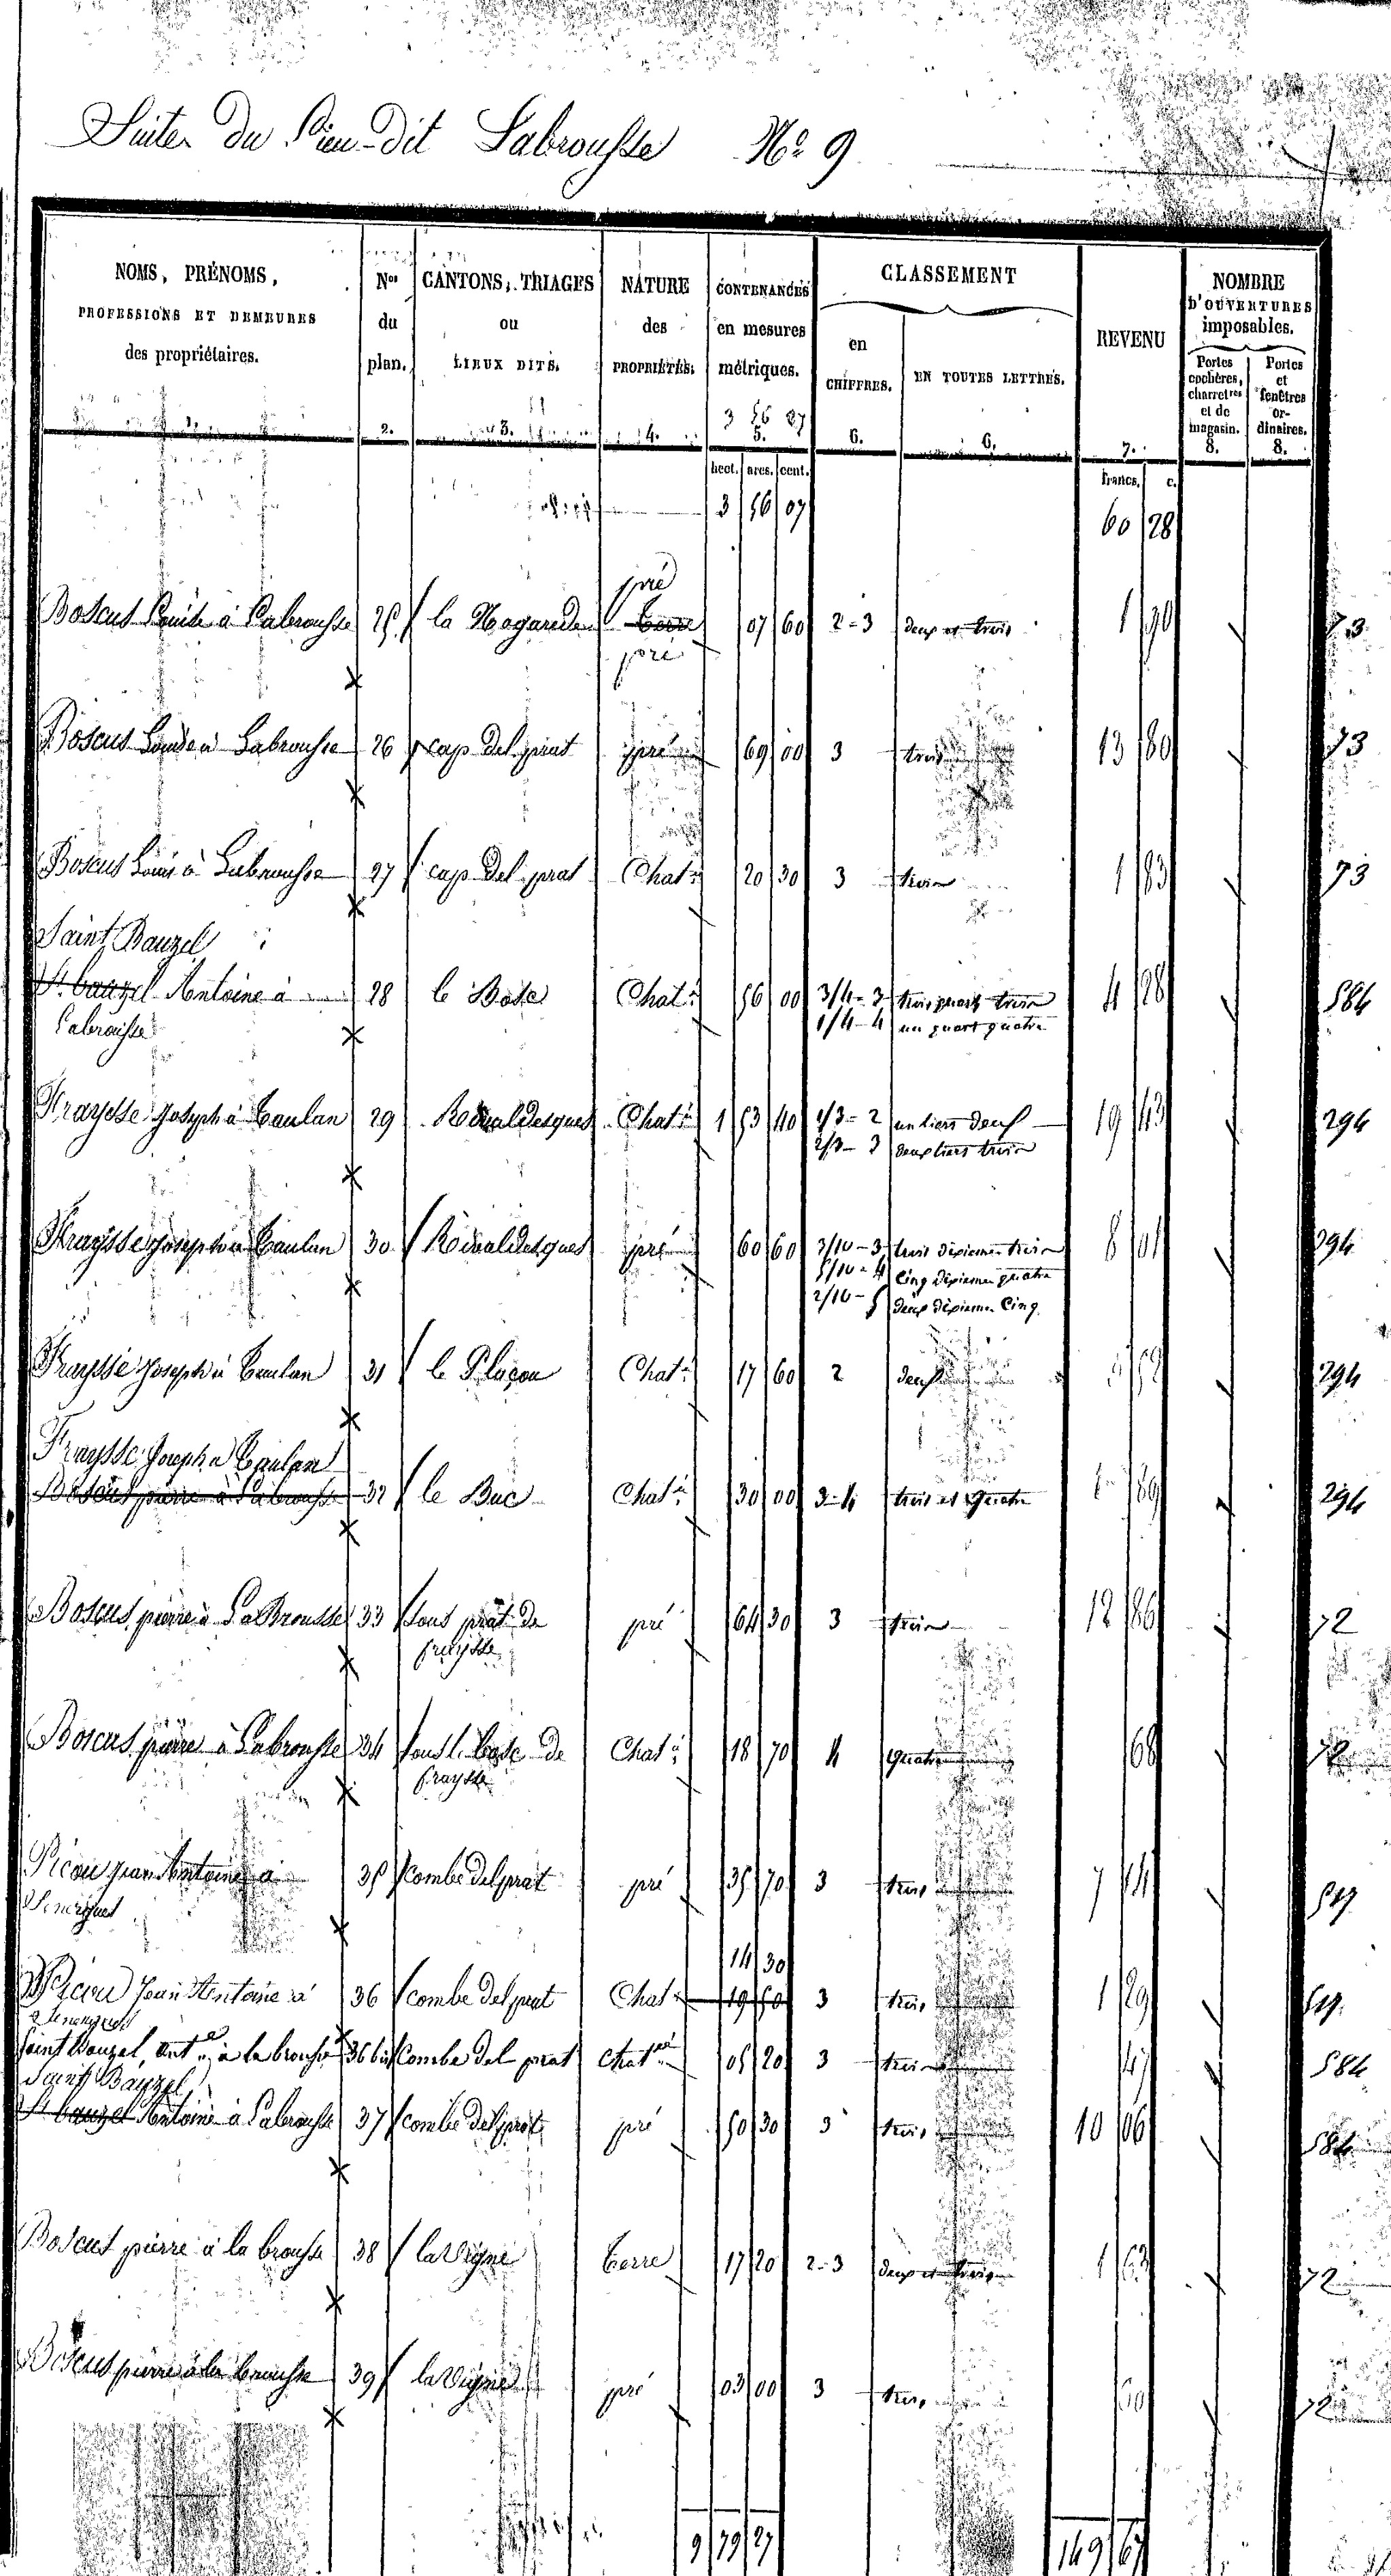 Suite du Lieu-dit Labrousse N° 9
NOMS, PRÉNOMS, PROFESSIONS ET DEMEURES des propriétaires.
Nos du plan.
CANTONS, TRIAGES ou LIEUX DITS.
NATURE des PROPRIÉTÉS.
CONTENANCES en mesures métriques.
CLASSEMENT
en CHIFFRES.
EN TOUTES LETTRES.
REVENU
NOMBRE D'OUVERTURES imposables.
Portes cochères, charretres et de magasin.
Portes et fenêtres ordinaires.
3 56 27
2. 3. 4. 5. 6. 6. 7. 8. 8.
hect. ares. cent. francs. c.
3 56 07 60 28
pré
Boscus Louis à Labrousse 25 la terre 07 60 2-3 deux et trois 1 90 73
pré
Boscus Louis à Labrousse 26 cap del prat pré 69 00 3 trois 13 80 73
Boscus Louis à Labrousse 27 cap del prat Chat: 20 30 3 trois 1 83 73
Saint Bauzel
St bauzel Antoine à 28 le Bosc Chat: 56 00 3/4-3 trois quarts trois 4 28 584
Labrousse 1/4-4 un quart quatre
Fraysse Joseph à Caulan 29 Chat: 1 53 40 1/3-2 un tiers deux 19 43 294
2/3-3 deux tiers trois
Fraysse Joseph à Caulan 30 pré 60 60 3/10-3 trois dixiemes trois 8 01 294
5/10-4 cinq dixiemes quatre
2/10-5 deux dixiemes Cinq
Fraysse Joseph à Caulan 31 le Plaçou Chat: 17 60 2 deux 294
Fraysse Joseph à Caulan
Boscus pierre à Labrousse 32 le Buc Chat: 30 00 3-4 trois et quatre 89 294
Boscus pierre à LaBrousse 33 sous prat de pré 64 30 3 trois 12 86 72
fraysse
Boscus pierre à Labrousse 34 sous l. Bosc de Chat: 18 70 4 Quatre 68 72
fraysse
Picou Jean Antoine à 35 Combe del prat pré 35 70 3 trois 7 14 517
Senergues
14 30
Picou Jean Antoine à 36 combe del prat Chat: 19 50 3 trois 1 29 517
a Senergues
Saint Bauzel, Ant.ne à la brousse 36 bis Combe del prat Chat: 05 20 3 trois 47 584
Saint Bauzel
St bauzel Antoine à Labrousse 37 combe del prat pré 50 30 3 trois 10 06 584
Boscus pierre à la brousse 38 la Vigne terre 17 20 2-3 deux et trois 1 63 72
Boscus pierre à la brousse 39 la Vigne pré 03 00 3 trois 60 72
9 79 27 149 67